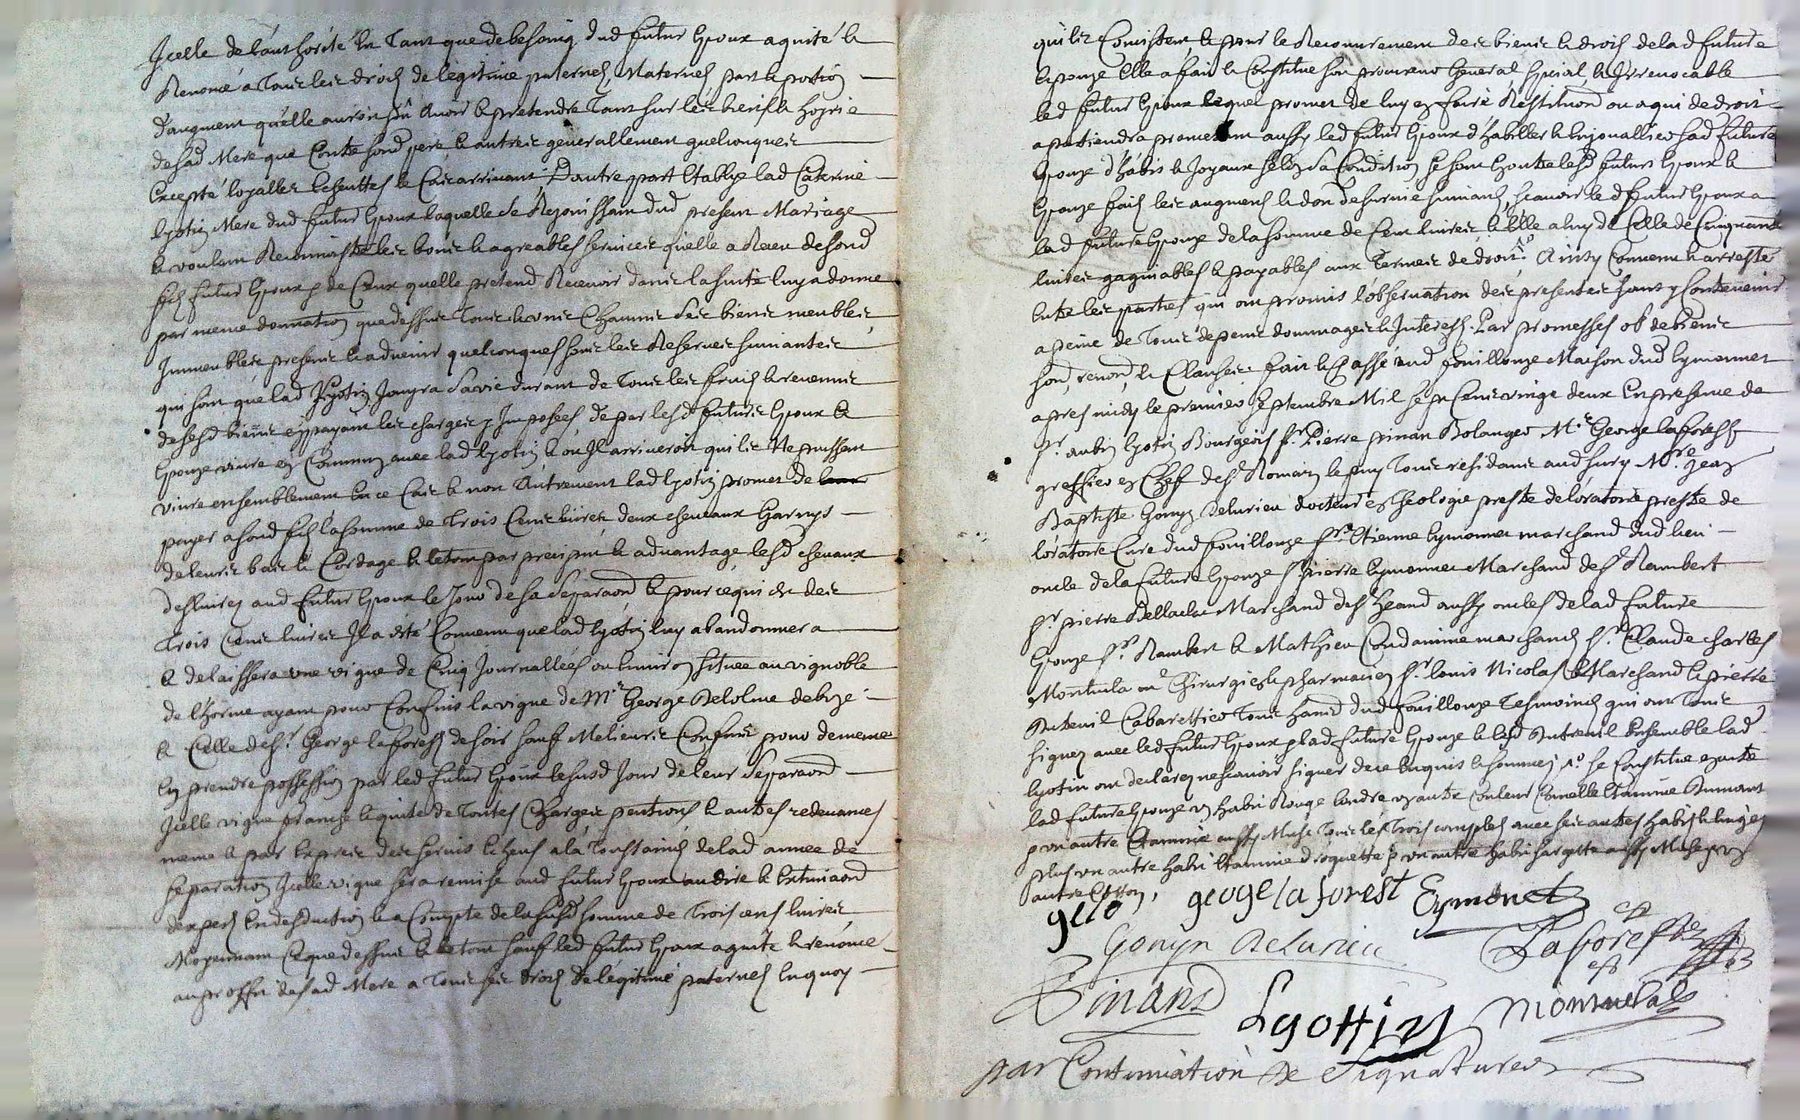 Icelle de l'authorité en tant que de besoing dud futur Epoux a quité &
Renoncé a tous les droits de legitime paternels Maternels part & portion
d'augment quelle auroit pû avoir & pretendre tant sur les biens & hoyrie
de sad Mere que Contre sond pere & autres generallement quelconques
Excepté loyalles Escheuttes le Cas arrivant D'autre part Etablye lad Caterine
lyotin Mere dud futur Epoux laquelle se Rejouissant dud present Mariage
& voulant Reconnoistre les bons & agreables services quelle a Receu de sond
fils futur Epoux & de Ceux quelle pretend Recevoir dans la suitte luy a donné
par meme donnation que dessus tous & uns Chacuns ses biens meubles
Immeubles presents & advenir quelconques sous les Reserves suivantes
qui sont que lad lyotin Jouyra sa vie durant de tous les fruits & revenus
de sesd biens en payant les charges y Imposées de par lesd futurs Epoux &
Epouze vivre en Commun avec lad lyotin & ou Il arriveroit quils Ne pussent
vivre ensemblement en ce Cas & non Autrement lad lyotin promet de
payer a sond fils la somme de trois Cents livres deux chevaux Garnys
de leurs bas & Cordage & le tout par precipu & advantage lesd chevaux
deslivrez aud futur Epoux le Jour de sa separaon & pour ce qui est des
trois Cents livres Il a esté Convenu que lad lyotin luy abandonnera
& delaissera une vigne de Cinq Journallées ou environ située au vignoble
de l'horme ayant pour Confins la vigne de Mr George Delolme de bize
& Celle de sr George laforest de soir sauf Melieurs Confins pour de meme
En prendre possession par led futur Epoux le susd Jour de leur separaon
Icelle vigne franche & quite de toutes Charges pentions & autres redevances
meme & par Exprès des servis Echeus a la Toussaincts de lad année de
separation Icelle vigne sera remise aud futur Epoux au dire & Extimaon
d'expers En desduction & a Compte de la susd somme de trois cens livres
Moyennant Ce que dessus & le tout sauf led futur Epoux a quité & renoncé
au proffit de sad Mere a tous ses droits de legitime paternels Enquoy
quils Consistent & pour le Recouvrement des biens & droits de lad future
Epouze Elle a fait & Constitué son procureur General special & Irrevocable
led futur Epoux lequel promet de luy en faire Restitution ou a qui de droit
apartiendra promettant aussy led futur Epoux d'habiller & Enjouallier sad future
Epouze d'habits & Joyaux selon sa Condition se sont Entre lesd futurs Epoux &
Epouze faits les augments & don de survie suivants, scavoir led futur Epoux a
lad future Epouze de la somme de Cent livres & Elle a luy de Celle de Cinquante
livres gagniables & payables aux termes de droit Ainsy Convenu & arresté
Entre les parties qui ont promis l'observation des presentes sans y Contrevenir
a peine de tous depens dommages & Interests Par promesses ob de biens
son renon & Clauses fait & passé aud fouillouze Maison dud Eymonnet
apres midy le premier septembre Mil sept Cents vingt deux En presence de
sr aubin lyotin Bourgeois sr Pierre pinan Bolanger Mre George laforest
greffier en Chef de st Romain le puy tous residants aud sury Mre Jean
Baptiste Gonyn Delurieu docteur en theologie prestre de l'oratoire prestre de
l'oratoire Curé dud fouillouze sr Etienne Eymonnet marchand dud lieu
oncle de la future Epouze sr pierre Eymonnet Marchand de st Rambert
sr pierre Dellac Marchand de st heand aussy oncles de lad future
Epouze sr Rambert & Mathieu Condamine marchands sr Claude Charles
Montuila me Chirurgien & pharmacien sr louis Nicolas Marchand & pierre
Duteuil Cabarettier tous habts dud fouillouze tesmoins qui ont tous
signez avec led futur Epoux & lad future Epouze & led Duteuil Ensemble lad
lyotin ont declarez ne scavoir signer de ce Enquis & sommez se Constitue en outre
lad future Epouze un habit Rouge Cendre un autre Couleur Canelle Etamine
& un autre Etamine aussy tous les trois complets avec ses autres habits & linges
plus un autre habit Etamine droguette & un autre habit sargette aussy
autre
gero
george laforest
Eymonet
Gonyn Delurieu
Laforest
Pinand
Lyottin
Montuila
par Continuation de Signatures